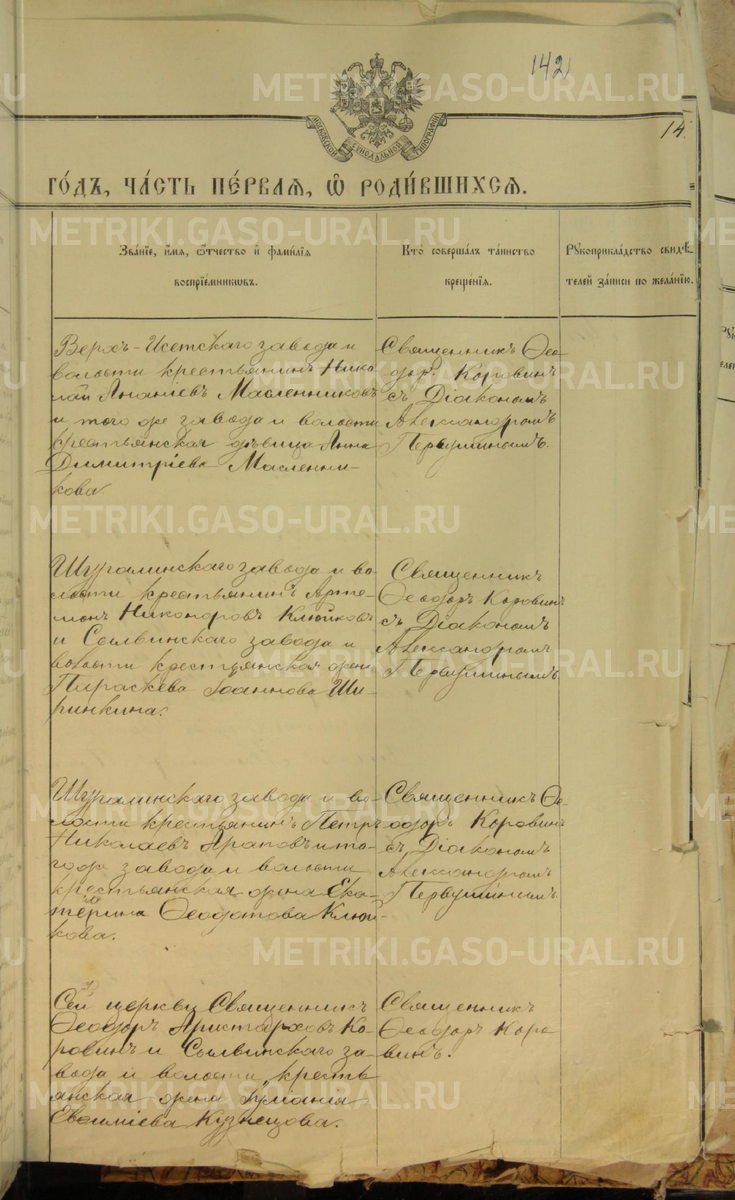 142
14
МОСКОВСКОЙ СѴНОДАЛЬНОЙ ТИПОГРАФІИ
ГО́ДЪ, ЧА́СТЬ ПЕ́РВАЯ, Ѡ҆ РОДИ́ВШИХСЯ.
Зва́нїе, и҆́мя, ѻ҆́тчество и҆ фами́лїя
воспрїе́мникѡвъ.
Кто̀ соверша́лъ та́инство
креще́нїя.
Рꙋкоприкла́дство свидѣ́-
телей за́писи по жела́нїю.
Верхъ-Исетскаго завода и
волости крестьянинъ Нико-
лай Ананіевъ Масленниковъ
и того же завода и волости
крестьянская дѣвица Анна
Димитріева Масленни-
кова.
Священникъ Ѳео-
доръ Коровинъ
съ Діакономъ
Александромъ
Первушинымъ.
Шуралинскаго завода и во-
лости крестьянинъ Арте-
мон Никоноровъ Клюйковъ
и Сылвинскаго завода и
волости крестьянская жена
Параскева Іоаннова Ши-
ринкина.
Священникъ
Ѳеодоръ Коровинъ
съ Діакономъ
Александромъ
Первушинымъ.
Шуралинскаго завода и во-
лости крестьянинъ Петръ
Николаевъ Араповъ и то-
го же завода и волости
крестьянская жена Ека-
терина Ѳеодотова Клюй-
кова.
Священникъ Ѳе-
одоръ Коровинъ
съ Діакономъ
Александромъ
Первушинымъ
Сей церкви Священникъ
Ѳеодоръ Аристарховъ Ко-
ровинъ и Сылвинскаго за-
вода и волости кресть
янская жена Іуліанія
Евѳиміева Кузнецова.
Священникъ
Ѳеодоръ Коро
винъ.
METRIKI.GASO-URAL.RU